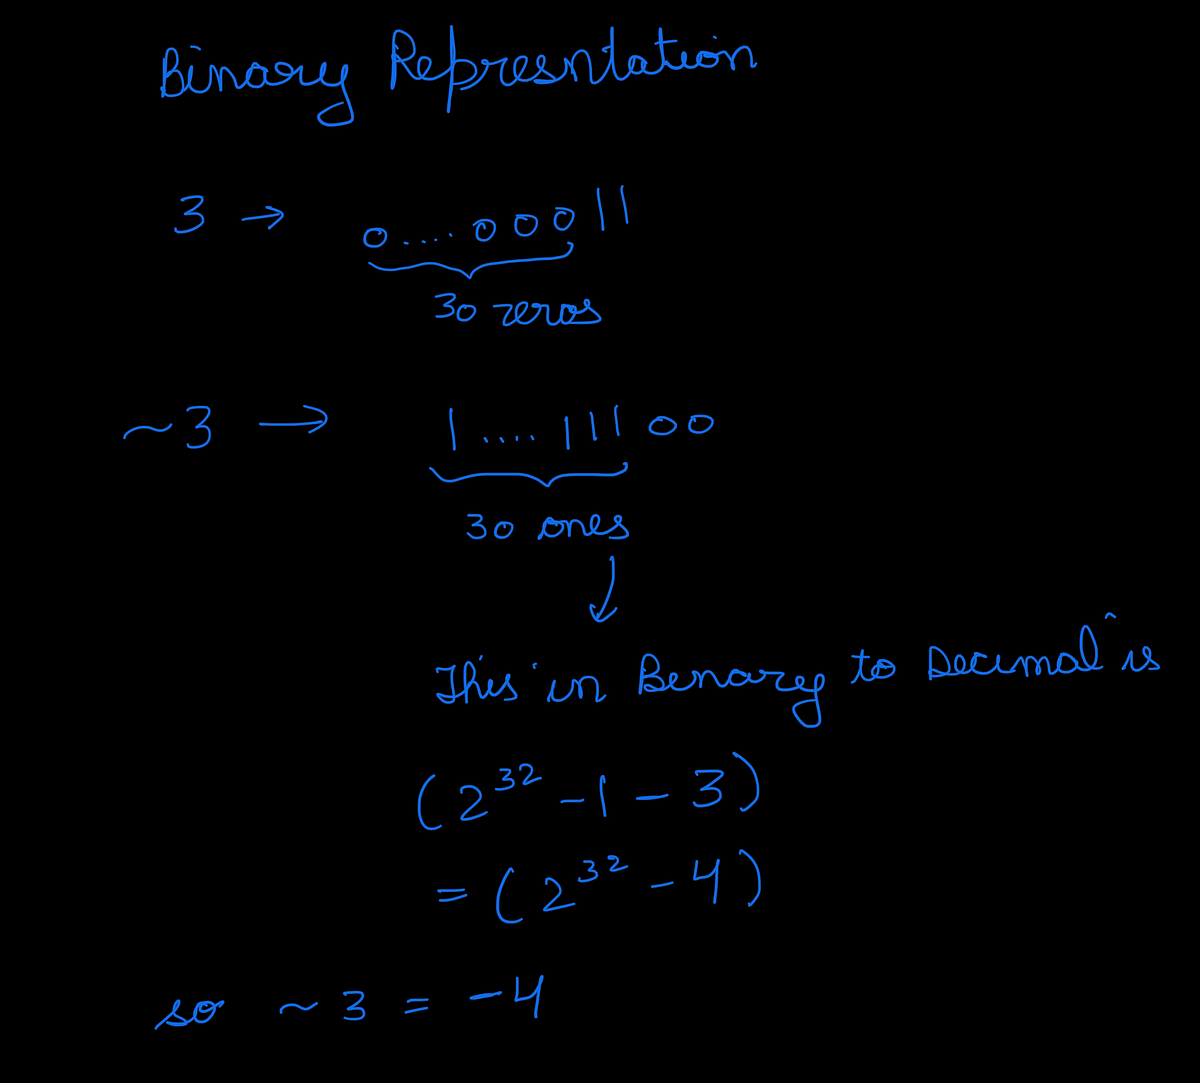 Binary Represntation
3 → 0....00011
30 zeros
~3 → 1....11100
30 ones
This in Benary to Decimal is
(2^32 - 1 - 3)
= (2^32 - 4)
so ~3 = -4